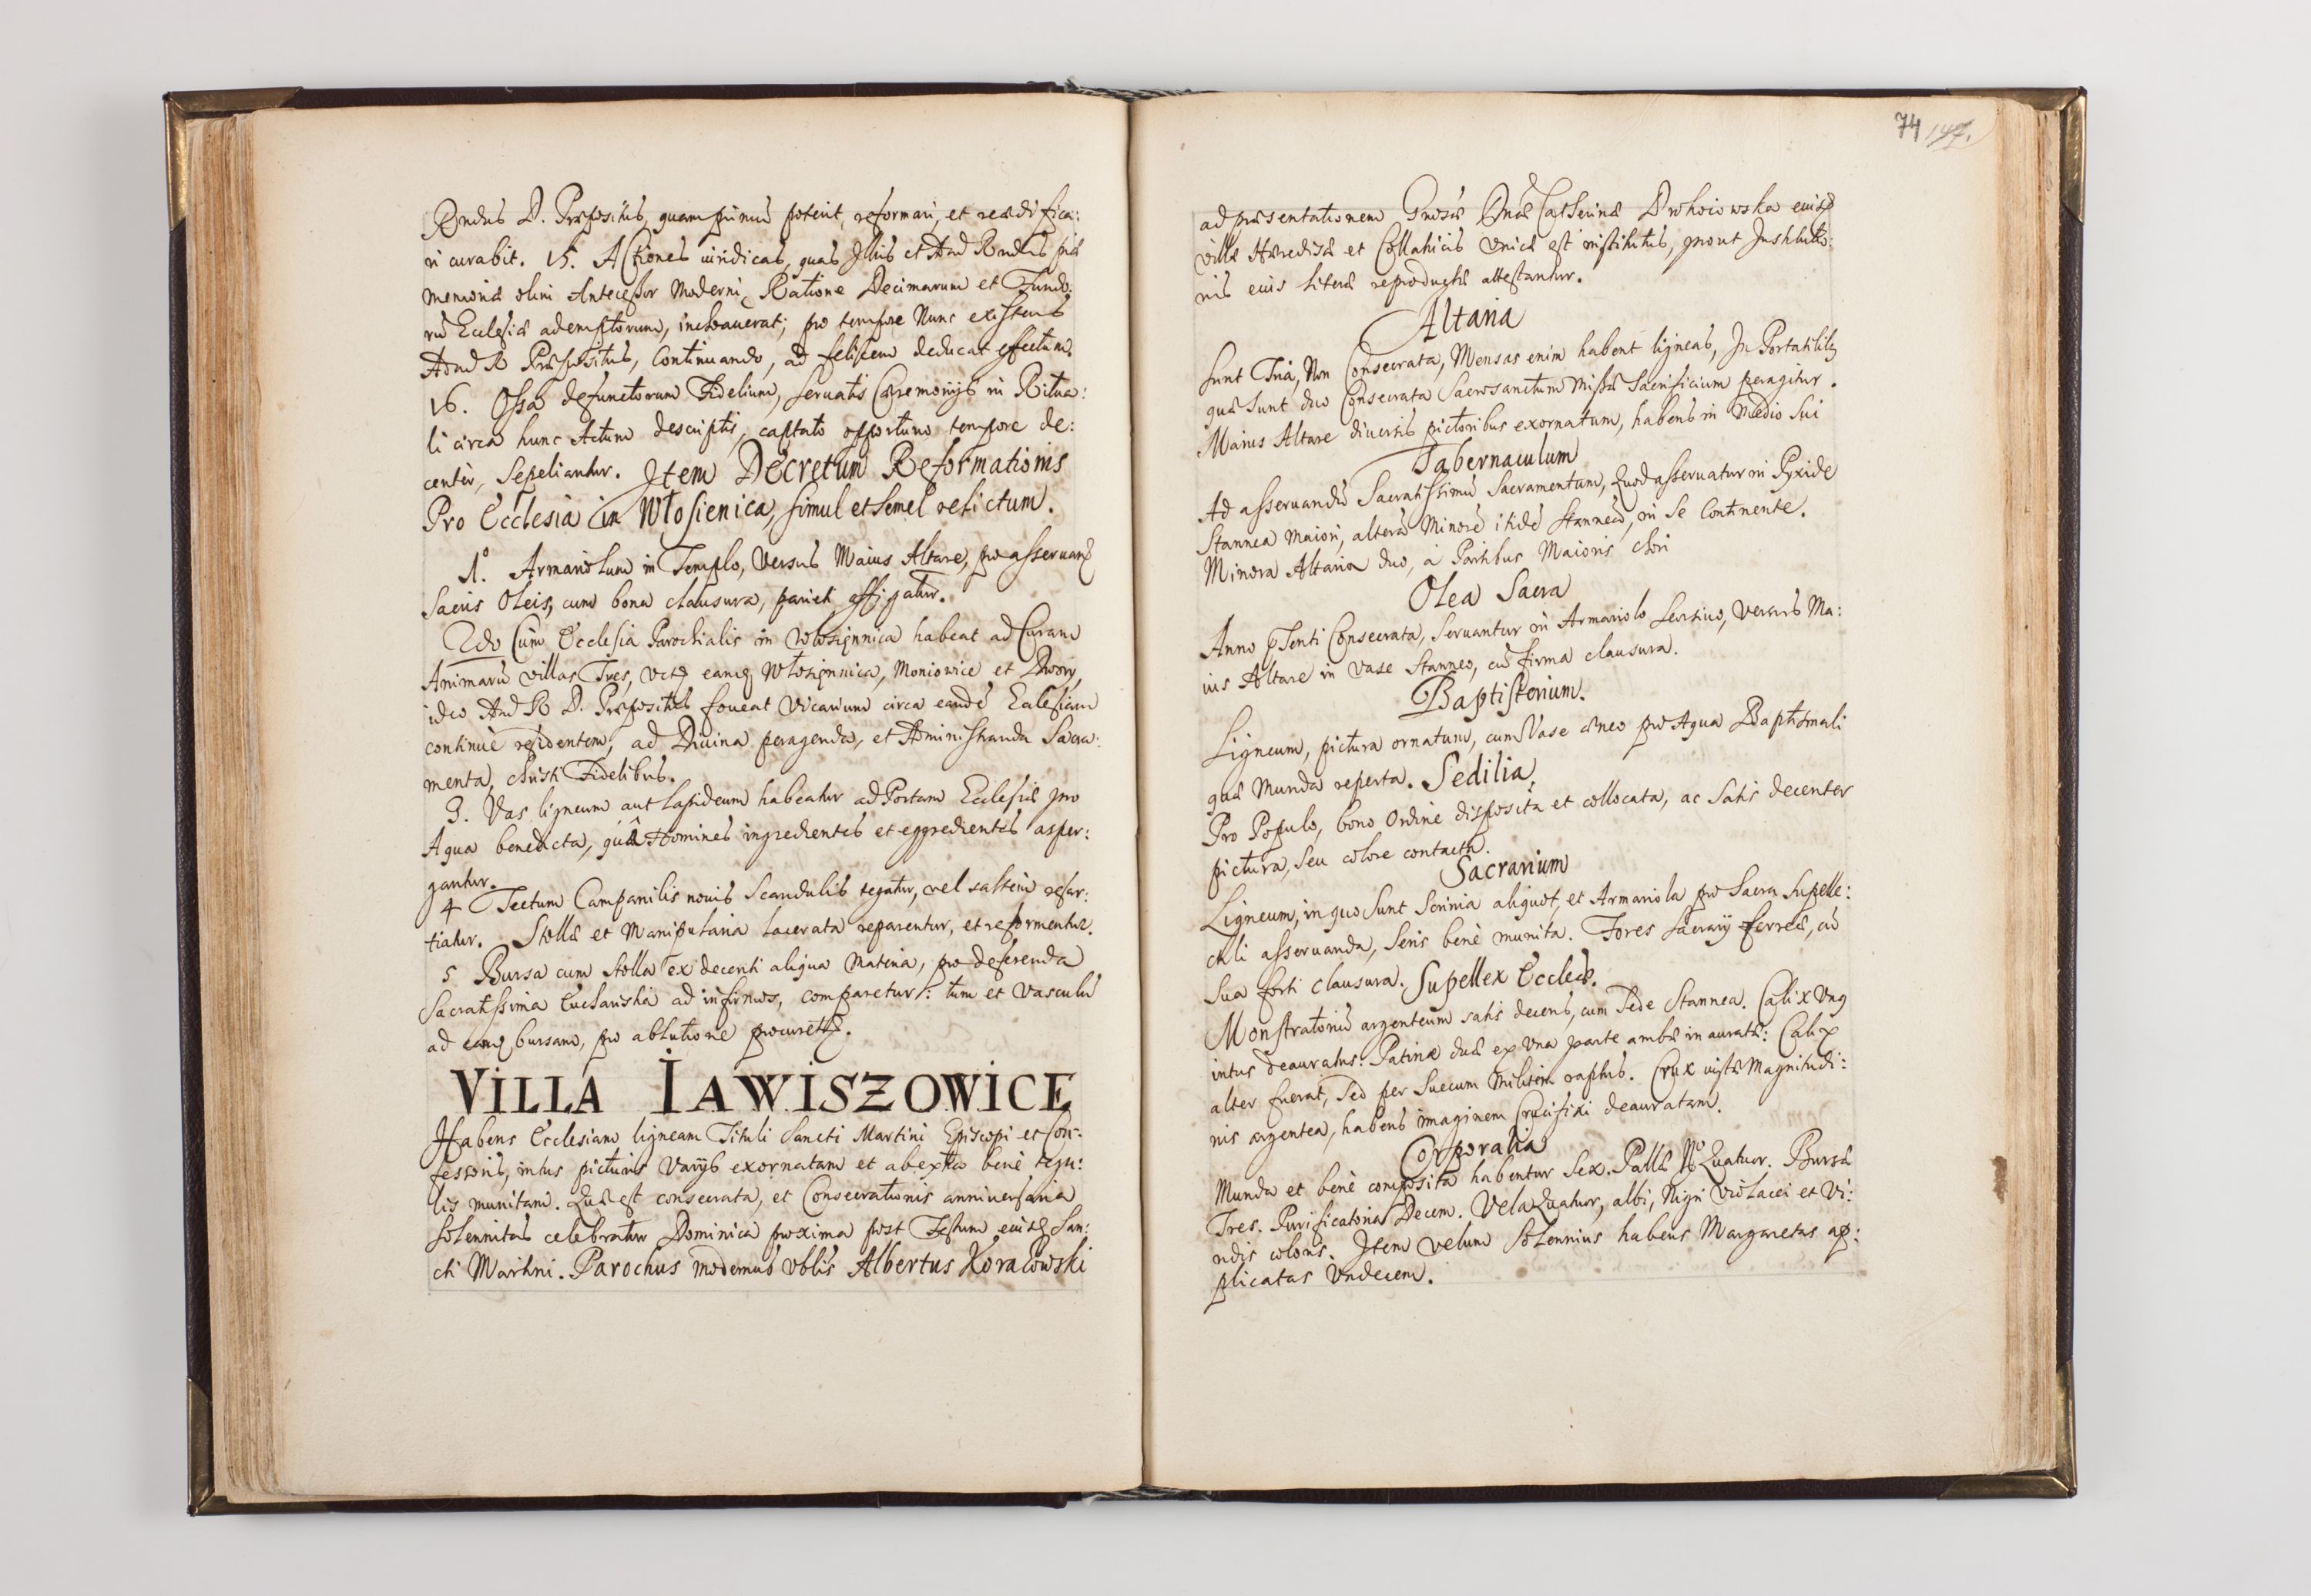 Rndus D. Præpositus, quam primũ poterit, reformari, et reædifica:
ri curabit. 15. Actiones iuridicas, quas Illris et Adm Rndus piæ
memoriæ olim Antecessor Moderni, Ratione Decimarum et Fundo:
rũ Ecclesiæ ademptorum, inchoauerat; pro tempore Nunc existens
Adm R Præpositus, Continuando, ad felicem deducat effectum.
16. Ossa defunctorum Fidelium, seruatis Cæremonijs in Ritua:
li circa hunc Actum descriptis, captato opportuno tempore de:
center, Sepeliantur. Item Decretum Reformationis
Pro Ecclesia in Włosienica, simul et semel relictum.
1º. Armariolum in Templo, versus Maius Altare, pro asseruand
Sacris Oleis, cum bona clausura, parieti affigatur.
2do Cùm Ecclesia Parochialis in Włosiennica habeat ad Curam
Animarũ villas Tres, vct eamq Włosiennica, Moniowice et Dwory,
ideo Adm R D. Præpositus foueat Vicarium circa eandẽ Ecclesiam
continuè residentem, ad Diuina peragenda, et Administranda Sacra:
menta, christi Fidelibus.
3. Vas ligneum aut lapideum habeatur ad Portam Ecclesiæ pro
Aqua benedicta, quâ Homines ingredientes et eggredientes asper:
gantur.
4 Tectum Campanilis nouis Scandulis tegatur, vel saltem resar:
tiatur. Stollæ et Manipularia lacerata reparentur, et reformentur.
5 Bursa cum stolla ex decenti aliqua Materia, pro deferenda
Sacratissima Eucharistia ad infirmos, comparetur: tum et vasculũ
ad eamq bursam, pro ablutione procuret.
VILLA IAWISZOWICE
Habens Ecclesiam ligneam Tituli Sancti Martini Episcopi et Con:
fessoris, intus picturis Varijs exornatam et ab extra benè tegu:
lis munitam. Quæ est consecrata, et Consecrationis anniuersaria
solennitas celebratur Dominica proxima post Festum eiusd San:
cti Martini. Parochus modernus Vblis Albertus Koralowski
74 147.
ad præsentationem Gnosæ Dnæ Catherinæ Drohoiowska eiusd
villæ Hæredisæ et Collatricis vnicæ est institutus, prout Institutio:
nis eius literæ reproductæ attestantur.
Altaria
sunt Tria, Non Consecrata, Mensas enim habent ligneas, In Portatilib
quæ sunt duo Consecrata Sacrosanctum Missæ Sacrificium peragitur.
Maius Altare diuersis pictoribus exornatum, habens in Medio sui
Tabernaculum
Ad asseruandũ Sacratissimũ Sacramentum, Quod asseruatur in Pyxide
Stannea maiori, alterã Minorẽ itidẽ stanneã, in se Continente.
Minora Altaria duo, à Partibus Maioris chori
Olea Sacra
Anno pSenti Consecrata, Seruantur in Armariolo versus Ma:
ius Altare in vase Stanneo, cũ firma clausura.
Baptisterium.
Ligneum, pictura ornatum, cum Vase æneo pro Aqua Baptismali
quæ Munda reperta. Sedilia.
Pro Populo, bono Ordine disposita et collocata, ac Satis decenter
pictura, seu colore contacta.
Sacrarium
Ligneum, in quo Sunt Scrinia aliquot, et Armariola pro Sacra Supelle:
ctili asseruanda, Seris benè munita. Fores Sacrarij ferreæ, cũ
sua forti clausura. Supellex Eccleæ.
Monstratoriũ argenteum satis decens, cum Pede Stannea. Calix Vnq
intus deauratus. Patinæ duæ ex Vna parte ambæ in auratæ: Calix
alter fuerat, Sed per Suecum Militem raptus. Crux iustæ Magnitudi:
nis argentea, habens imaginem Crucifixi deauratam.
Corporalia
Munda et benè composita habentur Sex. Pallæ Nº Quatuor. Bursæ
Tres. Purificatoria Decem. Vela Quatuor, albi, Nigri violacei et Vi:
ridis coloris. Item velum Solennius habens Margaretas ap:
plicatas Vndecem.